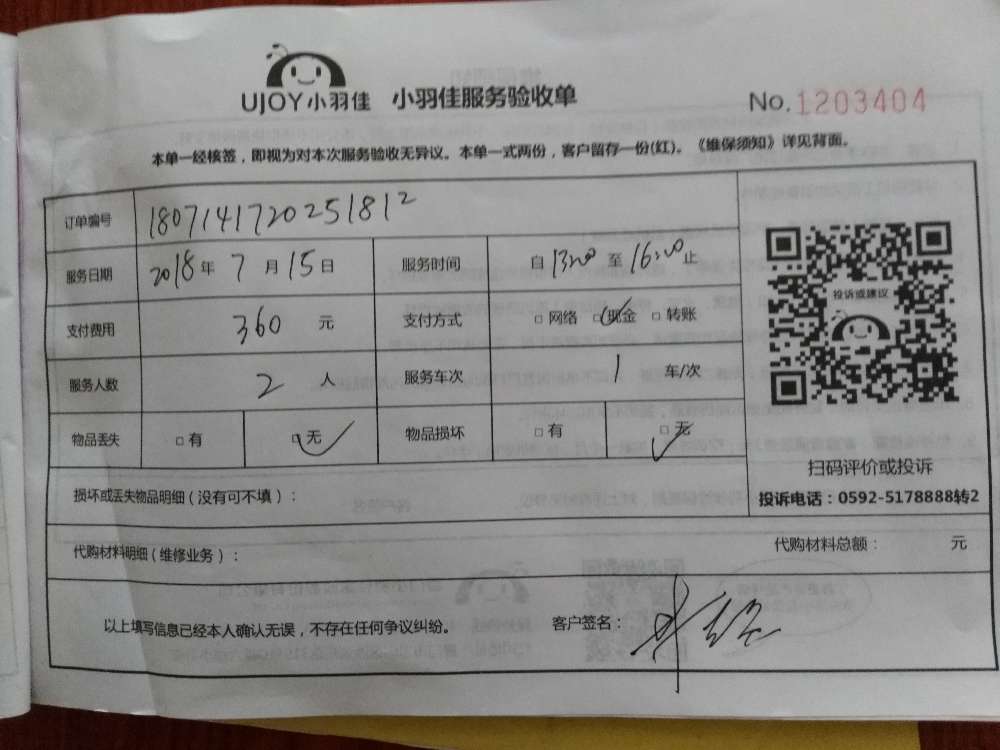 UJOY小羽佳 小羽佳服务验收单 No.1203404
本单一经核签，即视为对本次服务验收无异议。本单一式两份，客户留存一份(红)。《维保须知》详见背面。
订单编号 180714172025181 2
服务日期 2018年 7月 15日 服务时间 自 13:00 至 16:00 止
支付费用 360 元 支付方式 □网络 □现金 □转账
服务人数 2 人 服务车次 1 车/次
物品丢失 □有 □无 物品损坏 □有 □无
投诉或建议
扫码评价或投诉
投诉电话：0592-5178888转2
损坏或丢失物品明细（没有可不填）：
代购材料明细（维修业务）： 代购材料总额： 元
以上填写信息已经本人确认无误，不存在任何争议纠纷。 客户签名：